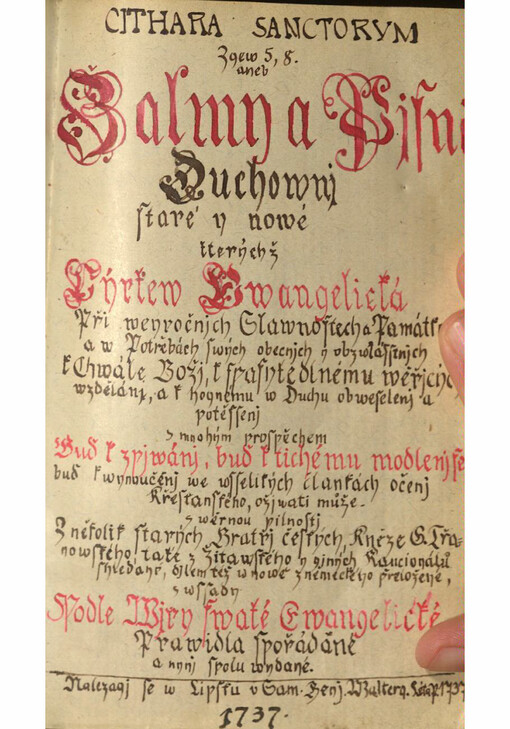 CITHARA SANCTORVM
Zgew 5, 8.
aneb
Žalmy a Pjsnė
Duchownj
staré y nowé
kterychž
Cýrkew Ewangelická
Při weyročnjch Slawnostech a Památk
a w Potřebách swých obecnjch y obzwlásstnjch
k Chwále Božj, k spasytedlnému wěřjcých
wzdělánj, a k hognému w Duchu obweselenj a
potěssenj
z mnohým prospěchem
Buď k zpjwánj, buď k tichému modlenj se
buď k wynoučenj we wsselikých člankách očenj
Křestanského, ožjwati může.
z wěrnou pilnostj
Z několik starých Bratřj českých, Kněze G. Třa-
nowského, také z Žitawského y gjných Kancionálů
shledané, djlem též w nowě z německého přeložené,
z wssady
Podle Wjry swaté Ewangelické
Prawidla spořádáné
a nynj spolu wydané.
Nalezagj se w Lipsku v Sam. Benj. Waltera. Léta P. 1737
1737.